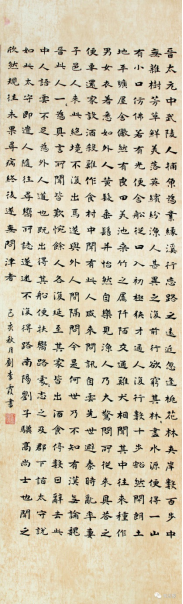 晉太元中武陵人捕魚為業緣溪行忘路之遠近忽逢桃花林夾岸數百步中
無雜樹芳草鮮美落英繽紛漁人甚異之復前行欲窮其林林盡水源便得一山
有小口仿佛若有光便舍船從口入初極狹才通人復行數十步豁然開朗土
地平曠屋舍儼然有良田美池桑竹之屬阡陌交通雞犬相聞其中往來種作
男女衣著悉如外人黃髮垂髫並怡然自樂見漁人乃大驚問所從來具答之
便要還家設酒殺雞作食村中聞有此人咸來問訊自云先世避秦時亂率妻
子邑人來此絕境不復出焉遂與外人間隔問今是何世乃不知有漢無論魏
晉此人一一為具言所聞皆歎惋餘人各復延至其家皆出酒食停數日辭去此
中人語云不足為外人道也既出得其船便扶向路處處誌之及郡下詣太守說
如此太守即遣人隨其往尋向所誌遂迷不復得路南陽劉子驥高尚士也聞之
欣然規往未果尋病終後遂無問津者
己亥秋月劉季霞書